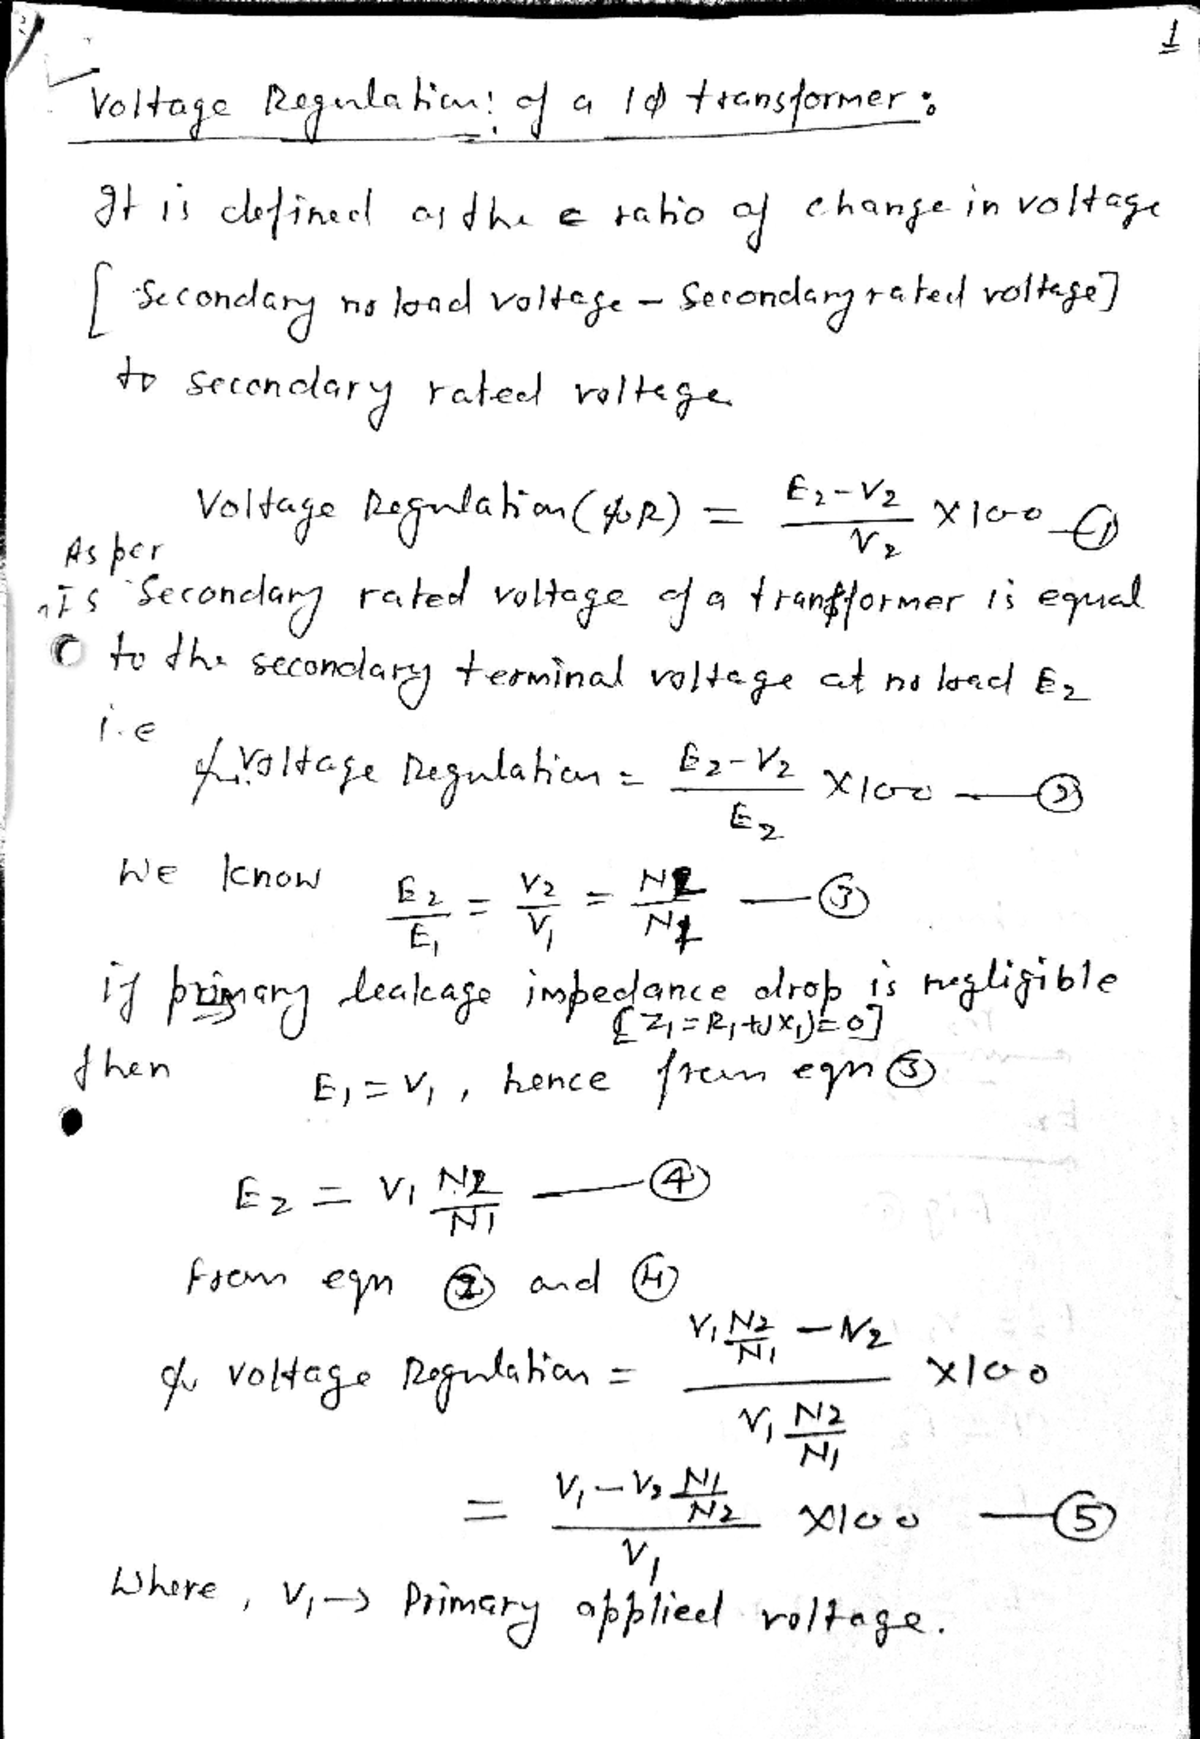 1
Voltage Regulation: of a 1φ transformer:
It is defined as the ratio of change in voltage
[Secondary no load voltage - Secondary rated voltage]
to secondary rated voltage.
Voltage Regulation (%R) = (E2-V2)/V2 X100 - ①
As per
IS Secondary rated voltage of a transformer is equal
to the secondary terminal voltage at no load E2
i.e
% Voltage Regulation = (E2-V2)/E2 X100 — ②
We know E2/E1 = V2/V1 = N2/N1 — ③
if primary leakage impedance drop is negligible
[Z1=R1+jX1)=0]
then E1=V1, hence from eqn ③
E2 = V1 N2/N1 — ④
From eqn ② and ④
% voltage Regulation = (V1 N2/N1 - V2)/(V1 N2/N1) X100
= (V1-V2 N1/N2)/V1 X100 — ⑤
Where, V1→ Primary applied voltage.